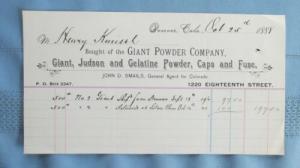 Denver, Colo. Oct 25th 1888
M Henry Kunsel
Bought of the GIANT POWDER COMPANY,
Giant, Judson and Gelatine Powder, Caps and Fuse,
JOHN D. SMAILS, General Agent for Colorado
P. O. Box 2347. 1220 EIGHTEENTH STREET.
500 No 2 Giant from Denver Sept 18th 97.50
500 " " 100 197.50